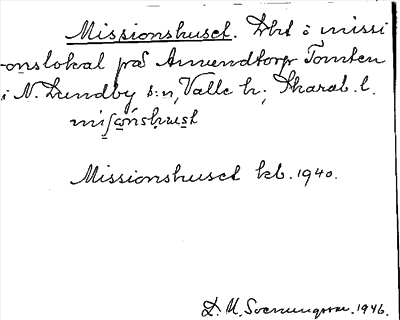 Missionshuset. Trkt o missi
-onslokal på Amundtorp Tomten
i N. Lundby s:n, Valle h:, Skarab. l.
Missionshuset kb. 1940.
D. M. Svenungsson. 1946.